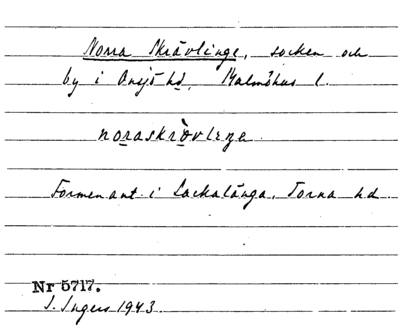 Norra Skrävlinge, socken och
by i Onsjö hd, Malmöhus l.
noraskrävlinge
Formen ant. i Lackalänga, Torna hd
Nr 5717.
I. Ingers 1943.